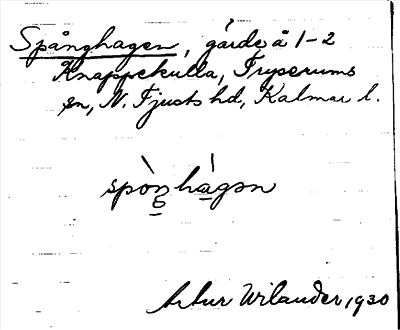 Spånghagen, gärde å 1-2
Knappekulla, Tryserums
sn, N. Tjusts hd, Kalmar l.
spòn͔hágən
Artur Wilander, 1930